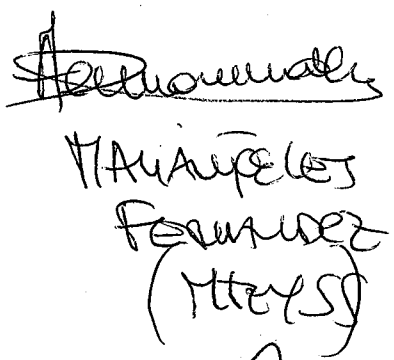 Mariángeles
FERNANDEZ
(MTEYSS)